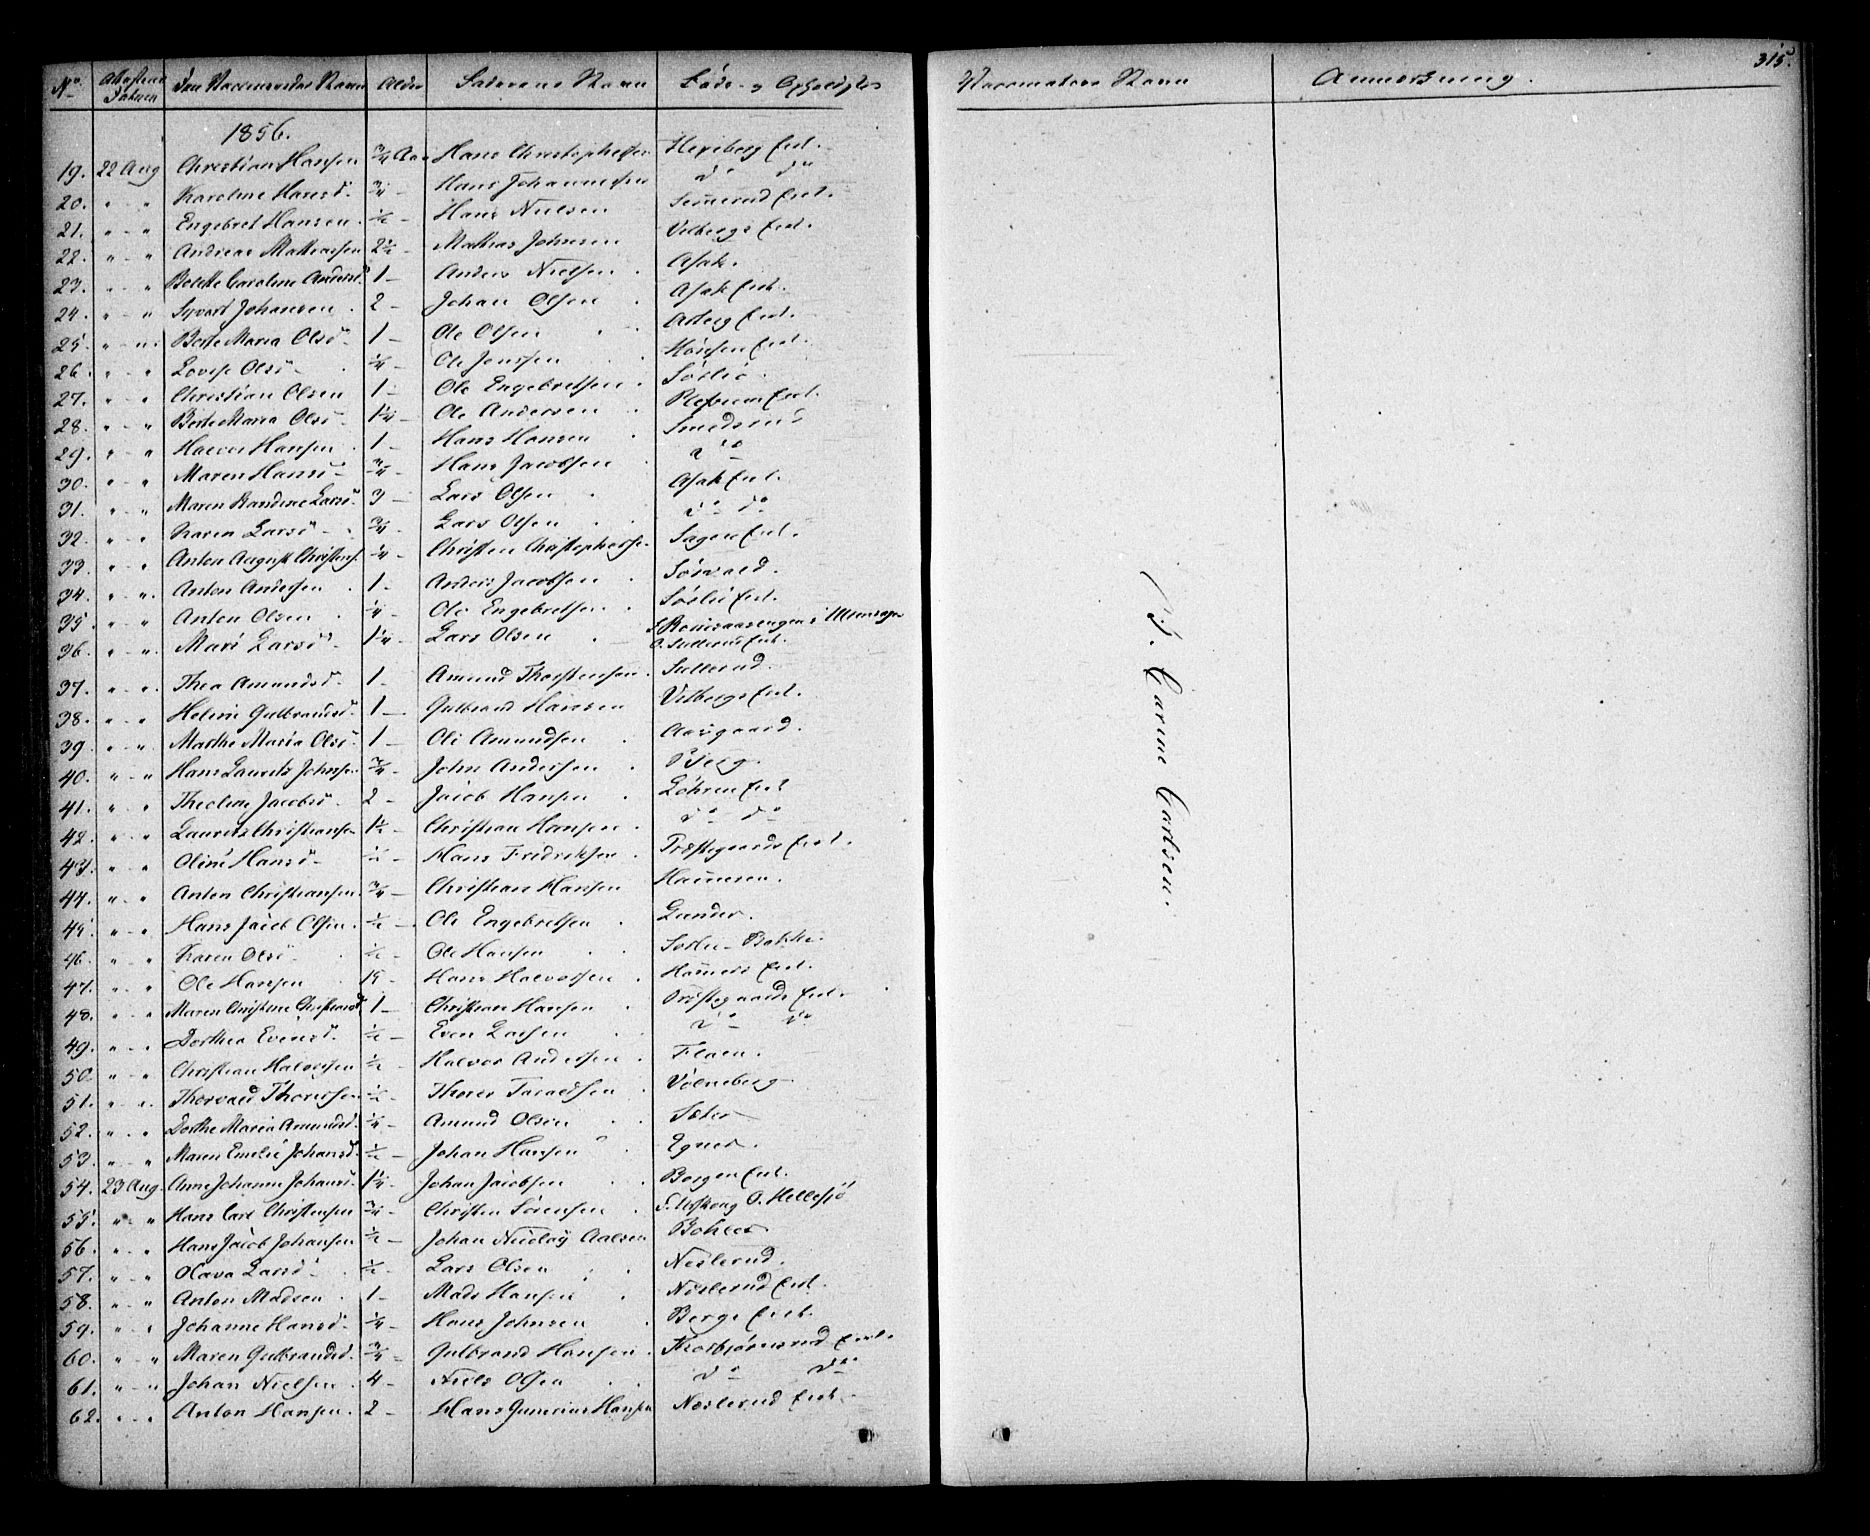 No. Attestens Datum Den Vaccineredes Navn Alder Faderens Navn Føde- og Opholdsted
1856.
19. 22 Aug Christian Hansen 3/4 Aar Hans Christophersen Hexeberg Eiet.
20. " " Karoline Hansd. 3/4 - Hans Johannessen do do
21. " " Engebret Hansen 1/2 - Hans Nielsen Eiet.
22. " " Andreas Mathiassen 2 1/2 - Mathias Johnsen Vilbergs Eiet.
23. " " Bolette Caroline Andersd. 1 - Anders Nielsen Asak.
24. " " Syvert Johansen 2 - Johan Olsen Asak Eiet.
25. " " Berte Maria Olsd. 1 - Ole Olsen Eiet.
26. " " Lovise Olsd. 1/4 - Ole Jensen Eiet.
27. " " Christian Olsen 1 - Ole Engebretsen Sørlie.
28. " " Berte Maria Olsd. 1 1/4 - Ole Andersen Eiet.
29. " " Halvor Hansen 1 - Hans Hansen Smedsrud
30. " " Maren Hansd. 3/4 - Hans Jacobsen do
31. " " Maren Randine Larsd. 3 - Lars Olsen Asak Eiet.
32. " " Karen Larsd. 3/4 - Lars Olsen do do
33. " " Anton August Christens. 1/4 - Christen Christophersen Eiet.
34. " " Anton Andersen 1 - Anders Jacobsen Sørvald.
35. " " Anton Olsen 1/4 - Ole Engebretsen Sørlie Eiet.
36. " " Mari Larsd. 1 1/4 - Lars Olsen F. i Ullensager O. Eiet.
37. " " Thea Amundsd. 1 - Amund Thorstensen
38. " " Helene Gulbrandsd. 1 - Gulbrand Hansen Vilbergs Eiet.
39. " " Marthe Maria Olsd. 1 - Ole Amundsen Aasgaard.
40. " " Hans Lauritz Johnsen 3/4 - John Andersen Bjerg.
41. " " Theoline Jacobsd. 2 - Jacob Hansen Løhren Eiet
42. " " Lauritz Christiansen 1 1/2 - Christian Hansen do do
43. " " Oline Hansd. 1/2 - Hans Fredriksen Præstegaards Eiet.
44. " " Anton Christiansen 3/4 - Christian Hansen Hammeren.
45. " " Hans Jacob Olsen 1/2 - Ole Engebretsen Gunder.
46. " " Karen Olsd. 1/2 - Ole Hansen Sørlie-Bakke.
47. " " Ole Hansen 19 - Hans Halvorsen Hammers Eiet.
48. " " Maren Christine Christiansd. 1 - Christian Hansen Præstegaards Eiet.
49. " " Dorthea Evensd. 1/2 - Even Larsen do do
50. " " Christian Halvorsen 1/2 - Halvor Andersen Flaen.
51. " " Thorvald Thoresen 1/2 - Thorer Taraldsen Vølneberg
52. " " Dorthe Maria Amundsd. 1/4 - Amund Olsen Sæter
53. " " Maren Emilie Johansd. 1/2 - Johan Hansen Egner.
54. 23 Aug. Anne Johanne Johansd. 1 1/4 - Johan Jacobsen Borgen Eiet.
55. " " Hans Carl Christensen 3/4 - Christen Sørensen F. Urskoug O. Hellesjø
56. " " Hans Jacob Johansen 1/2 - Johan Nicolay Aalsen Bohler
57. " " Olava Larsd. 1/2 - Lars Olsen Neslerud.
58. " " Anton Madsen 1 - Mads Hansen Neslerud Eiet.
59. " " Johanne Hansd. 1/4 - Hans Johnsen Berge Eiet.
60. " " Maren Gulbrandsd. 3/4 - Gulbrand Hansen Thorbjørnsrud Eiet.
61. " " Johan Nielsen 4 - Niels Olsen do do
62. " " Anton Hansen 2 - Hans Gunerius Hansen Neslerud Eiet.
Vaccinators Navn Anmærkning.
315.
B. Carine Carlsen.